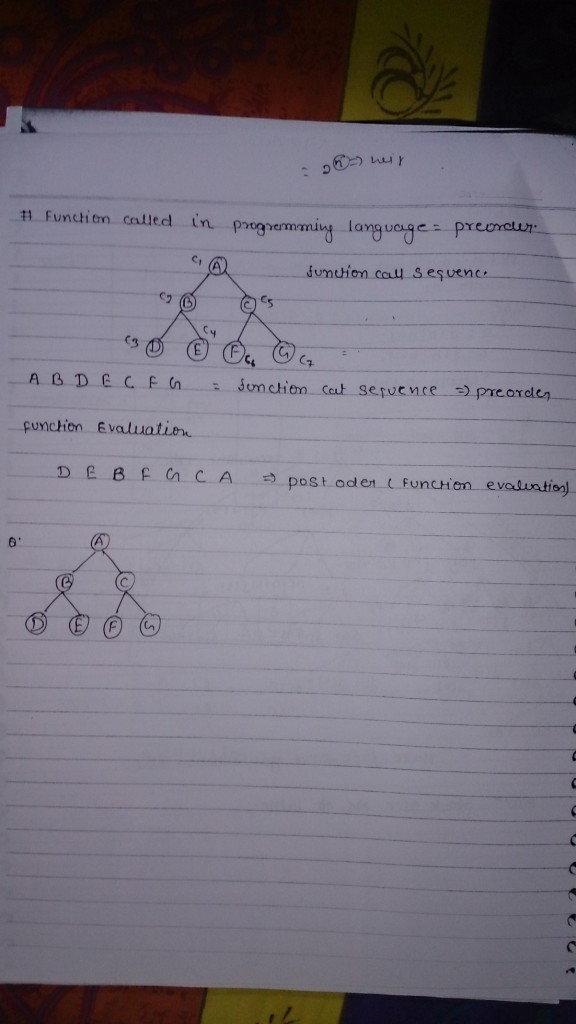 # Function called in programming language = preorder.
C1 A function call sequence
C2 B C C5
C3 D E C4 F C6 G C7
A B D E C F G = function cal sequence => preorder
Function Evaluation
D E B F G C A => post oder ( Function evaluation)
Q.
A
B C
D E F G